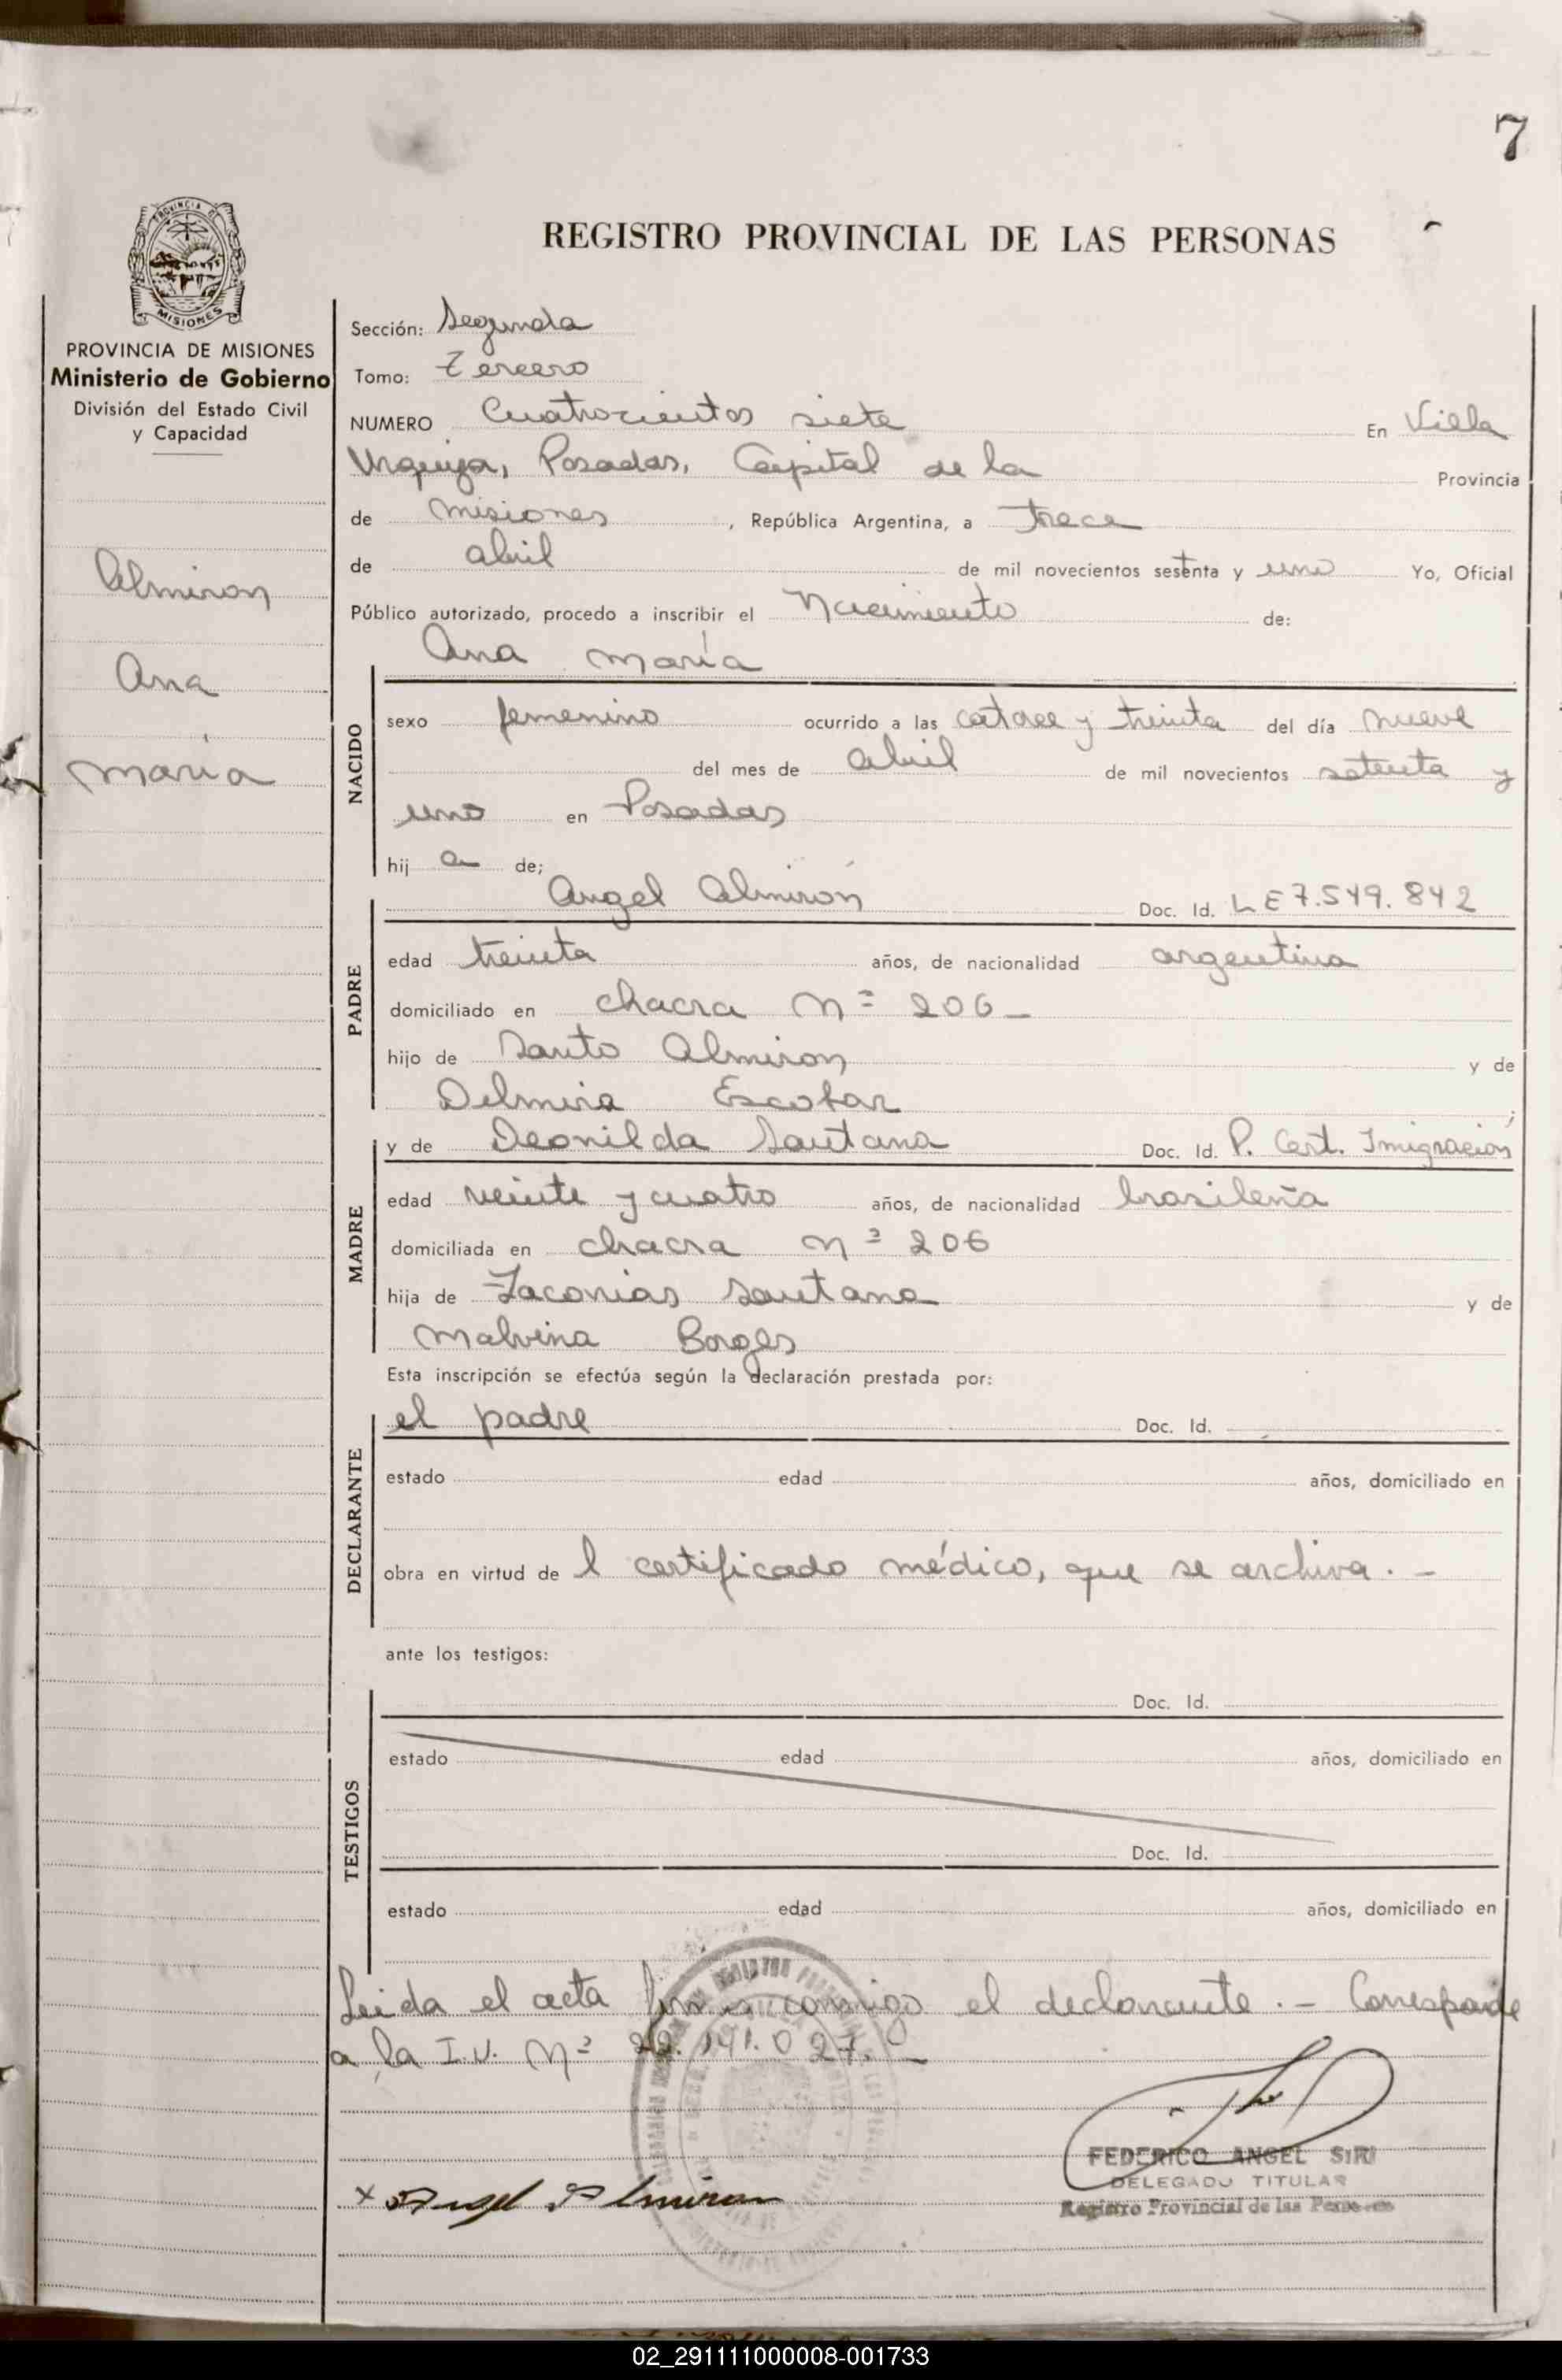 7
REGISTRO PROVINCIAL DE LAS PERSONAS
PROVINCIA DE
MISIONES
PROVINCIA DE MISIONES
Ministerio de Gobierno
División del Estado Civil
y Capacidad
Almiron
Ana
María
Sección: Segunda
Tomo: Tercero
NUMERO Cuatrocientos siete En Villa
Urquiza, Posadas, Capital de la Provincia
de Misiones, República Argentina, a trece
de abril de mil novecientos setenta y uno Yo, Oficial
Público autorizado, procedo a inscribir el Nacimiento de:
Ana María
NACIDO
sexo femenino ocurrido a las catorce y treinta del día nueve
del mes de abril de mil novecientos setenta y
uno en Posadas
hij a de;
Angel Almirón Doc. Id. L E 7.549.842
PADRE
edad treinta años, de nacionalidad argentina
domiciliado en chacra Nº 206 -
hijo de Santo Almiron y de
Delmira Escobar ;
y de Deonilda Santana Doc. Id. P. Cert. Imigración
MADRE
edad veinte y cuatro años, de nacionalidad brasileña
domiciliada en chacra Nº 206
hija de Jaconias Santana y de
Malvina Borges
Esta inscripción se efectúa según la declaración prestada por:
el padre Doc. Id.
DECLARANTE
estado edad años, domiciliado en
obra en virtud de l certificado médico, que se archiva. -
ante los testigos:
Doc. Id.
TESTIGOS
estado edad años, domiciliado en
Doc. Id.
estado edad años, domiciliado en
Leida el acta firma conmigo el declarante. - Corresponde
a la I.U. Nº 22.141.027. -
x Angel Almiron
FEDERICO ANGEL SIRI
DELEGADO TITULAR
Registro Provincial de las Personas
02_291111000008-001733